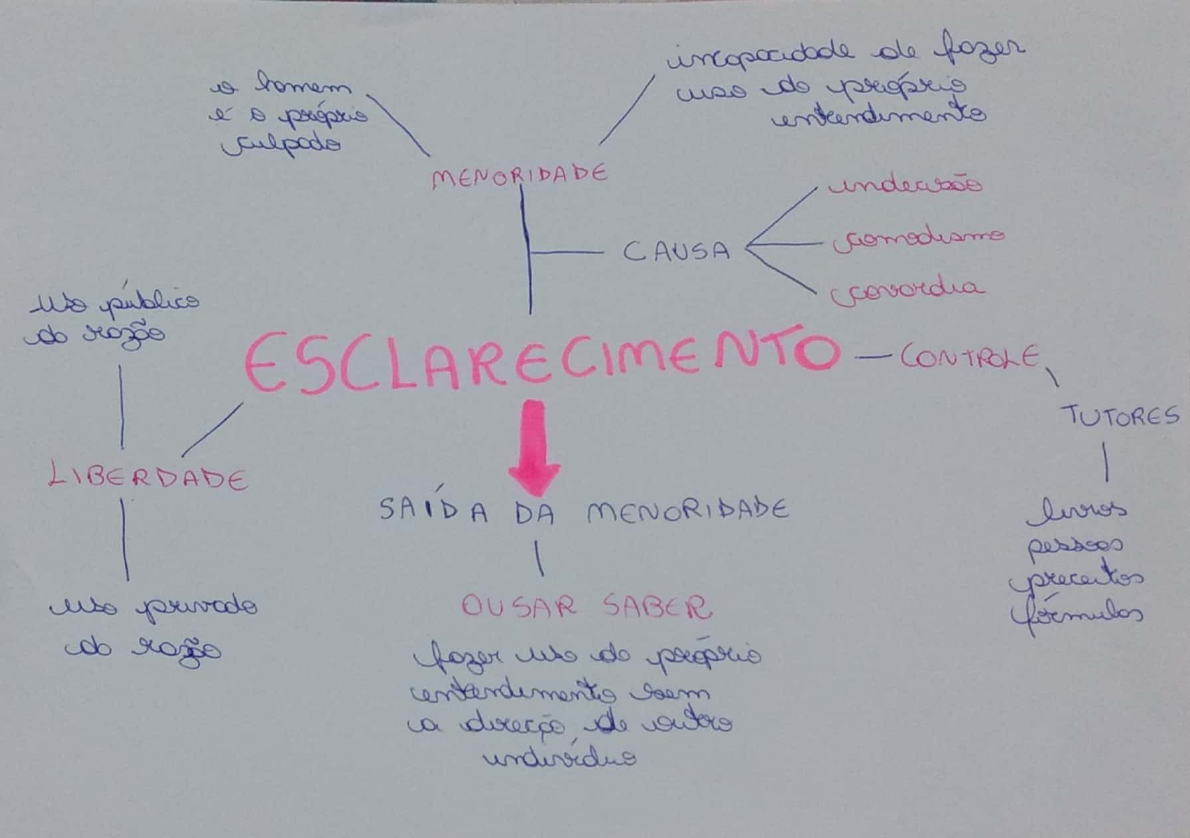 o homem
é o próprio
culpado
incapacidade de fazer
uso do próprio
entendimento
MENORIDADE
CAUSA
indecisão
comodismo
covardia
uso público
da razão
ESCLARECIMENTO
CONTROLE
TUTORES
livros
pessoas
preceitos
fórmulas
LIBERDADE
uso privado
da razão
SAÍDA DA MENORIDADE
OUSAR SABER
fazer uso do próprio
entendimento sem
a direção de outro
indivíduo